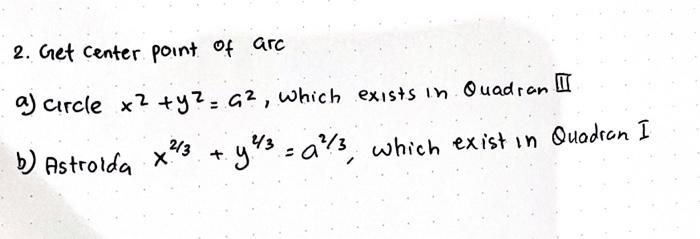 2. Get center point of arc
a) circle x² + y² = a², which exists in Quadran III
b) Astroida x^2/3 + y^2/3 = a^2/3, which exist in Quadran I